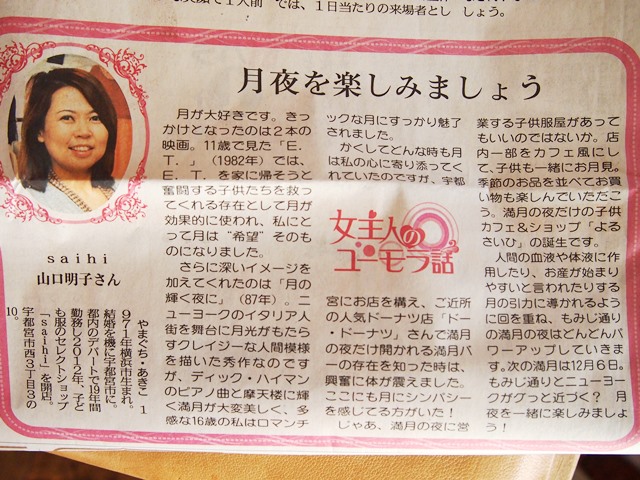 では、1日当たりの来場者とし
しょう。
月夜を楽しみましょう
saihi
山口明子さん
やまぐち・あきこ 1
971年横浜市生まれ。
結婚を機に宇都宮市に。
都内のデパートで19年間
勤務し2012年、子ど
も服のセレクトショップ
「saihi」を開店。
宇都宮市西3丁目3の
10。
月が大好きです。きっ
かけとなったのは2本の
映画。11歳で見た「E.
T.」(1982年)では、
E.T.を家に帰そうと
奮闘する子供たちを救っ
てくれる存在として月が
効果的に使われ、私にと
って月は“希望”そのも
のになりました。
さらに深いイメージを
加えてくれたのは「月の
輝く夜に」(87年)。ニ
ューヨークのイタリア人
街を舞台に月光がもたら
すクレイジーな人間模様
を描いた秀作なのです
が、ディック・ハイマン
のピアノ曲と摩天楼に輝
く満月が大変美しく、多
感な16歳の私はロマンチ
ックな月にすっかり魅了
されました。
かくしてどんな時も月
は私の心に寄り添ってく
れていたのですが、宇都
女主人の
ユーモラ話
宮にお店を構え、ご近所
の人気ドーナツ店「ドー
・ドーナツ」さんで満月
の夜だけ開かれる満月バ
ーの存在を知った時は、
興奮に体が震えました。
ここにも月にシンパシー
を感じてる方がいた!
じゃあ、満月の夜に営
業する子供服屋があって
もいいのではないか。店
内一部をカフェ風にし
て、子供も一緒にお月見。
季節のお品を並べてお買
い物も楽しんでいただこ
う。満月の夜だけの子供
カフェ&ショップ「よる
さいひ」の誕生です。
人間の血液や体液に作
用したり、お産が始まり
やすいと言われたりする
月の引力に導かれるよう
に回を重ね、もみじ通り
の満月の夜はどんどんパ
ワーアップしていきま
す。次の満月は12月6日。
もみじ通りとニューヨー
クがグっと近づく? 月
夜を一緒に楽しみましょ
う!